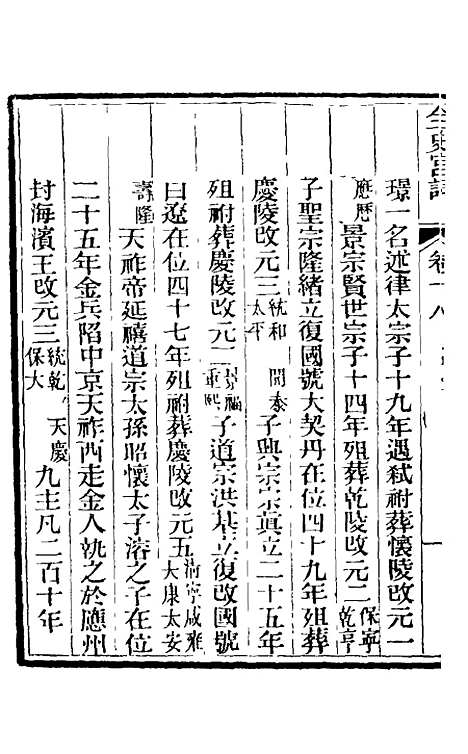 全史宮詞
卷十八
璟一名述律太宗子十九年遇弒祔葬懷陵改元一
應歷景宗賢世宗子十四年殂葬乾陵改元二保寧乾亨
子聖宗隆緒立復國號大契丹在位四十九年殂葬
慶陵改元三統和開泰太平子興宗宗真立二十五年
殂祔葬慶陵改元二景福重熙子道宗洪基立復改國號
曰遼在位四十七年殂祔葬慶陵改元五清寧咸雍大康大安
壽隆天祚帝延禧道宗太孫昭懷太子濬之子在位
二十五年金兵陷中京天祚西走金人執之於應州
封海濱王改元三統乾天慶保大九主凡二百十年